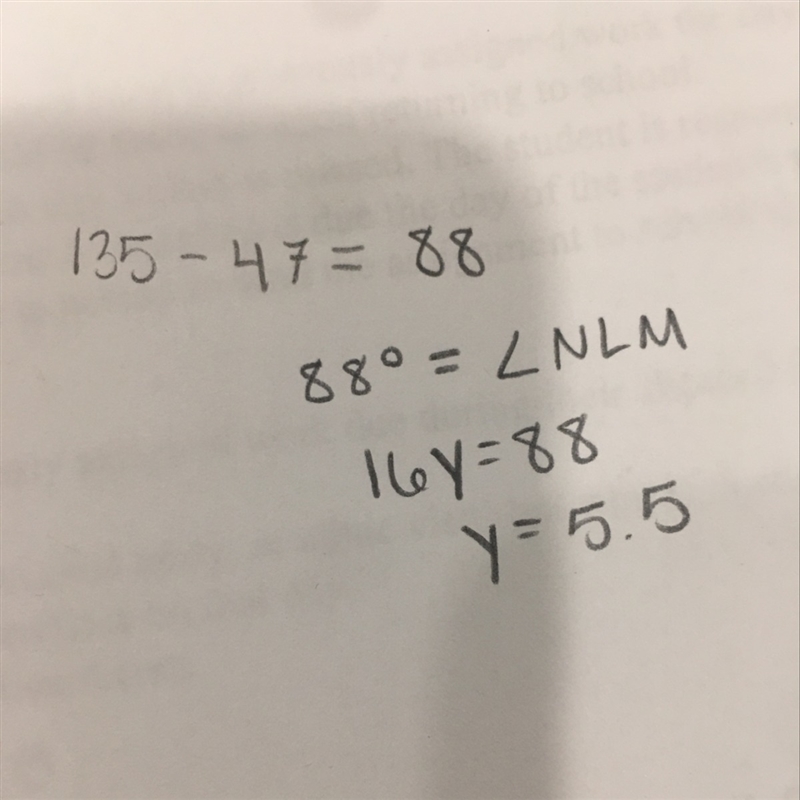 135 - 47 = 88
88° = ∠NLM
16y = 88
y = 5.5